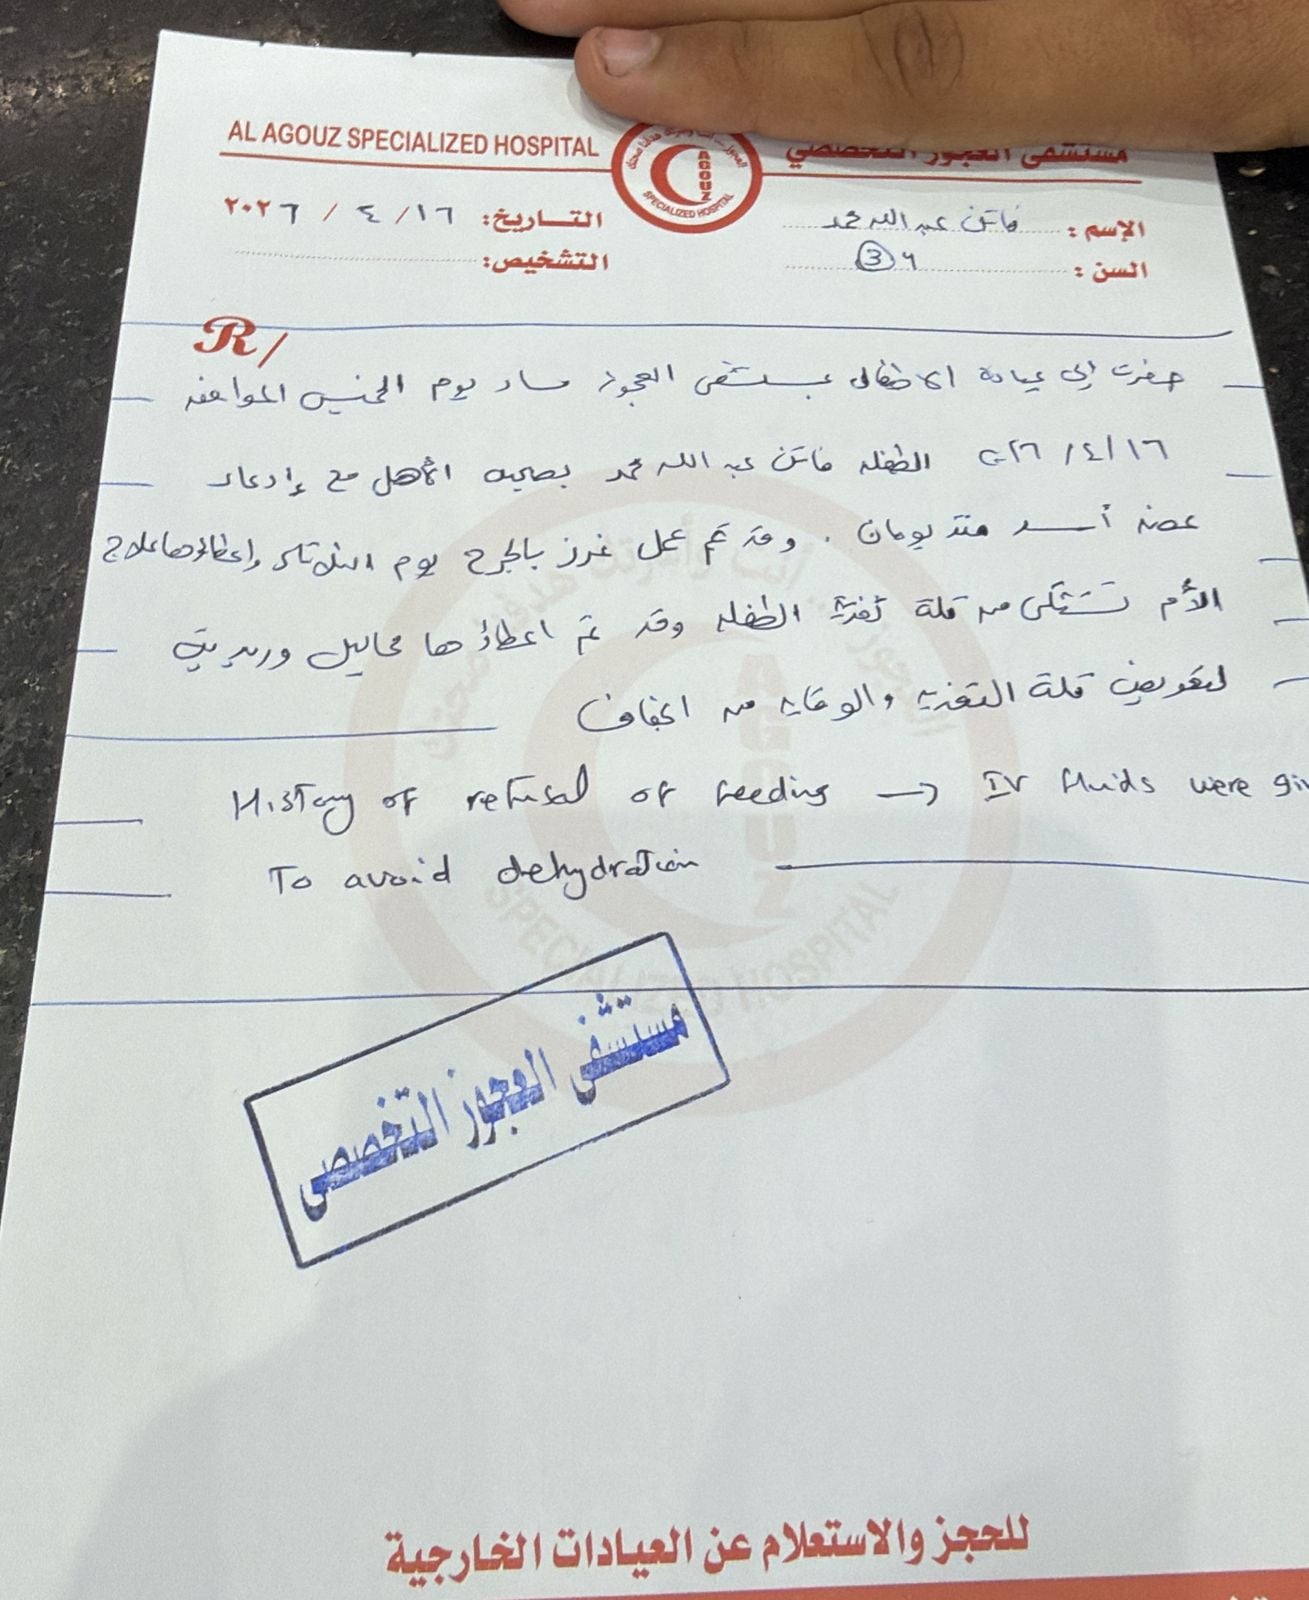 AL AGOUZ SPECIALIZED HOSPITAL
مستشفى العجوز التخصصي
AGOUZ
SPECIALIZED HOSPITAL
الإسم : فاتن عبد الله محمد
التاريخ: ١٦ / ٤ / ٢٠٢٦
السن : 3 y
التشخيص:
R/
حضرت إلى عيادة الاطفال بمستشفى العجوز مساء يوم الخميس الموافق
١٦ / ٤ / ٢٠٢٦ الطفله فاتن عبد الله محمد بصحبه الأهل مع إدعاء
عضه أسد منذ يومان . وقد تم عمل غرز بالجرح يوم الثلاثاء وإعطاؤها علاج
الأم تشتكى من قلة تغذية الطفله وقد تم اعطاؤها محاليل وريدية
لتعويض قلة التغذيه والوقايه من الجفاف
History of refusal of feeding → IV fluids were
To avoid dehydration
مستشفى العجوز التخصصى
للحجز والاستعلام عن العيادات الخارجية